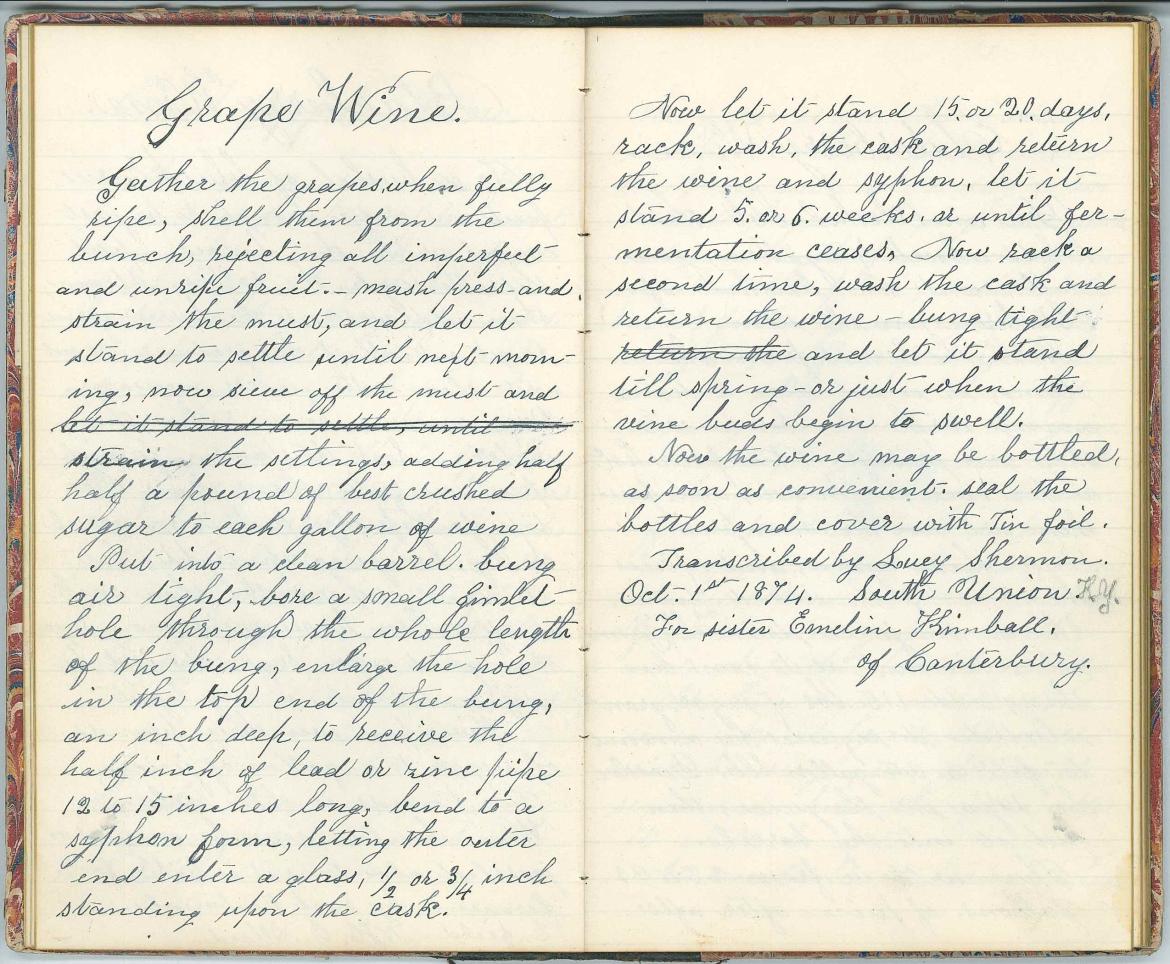 Grape Wine.
Gather the grapes, when fully
ripe, shell them from the
bunch, rejecting all imperfect
and unripe fruit. – mash press and
strain the must, and let it
stand to settle until next morn-
ing, now sieve off the must and
let it stand to settle, until
strain the settings, adding half
half a pound of best crushed
sugar to each gallon of wine
Put into a clean barrel. bung
air tight, bore a small gimlet
hole through the whole length
of the bung, enlarge the hole
in the top end of the bung,
an inch deep, to receive the
half inch of lead or zinc pipe
12 to 15 inches long, bend to a
syphon form, letting the outer
end enter a glass, 1/2 or 3/4 inch
standing upon the cask.
Now let it stand 15. or 20. days,
rack, wash, the cask and return
the wine and syphon, let it
stand 5. or 6. weeks. or until fer-
mentation ceases, Now rack a
second time, wash the cask and
return the wine – bung tight
return the and let it stand
till spring – or just when the
vine buds begin to swell.
Now the wine may be bottled,
as soon as convenient. seal the
bottles and cover with Tin foil.
Transcribed by Lucy Shermon.
Oct. 1st 1874. South Union K.y.
For sister Emelin Kimball.
of Canterbury.